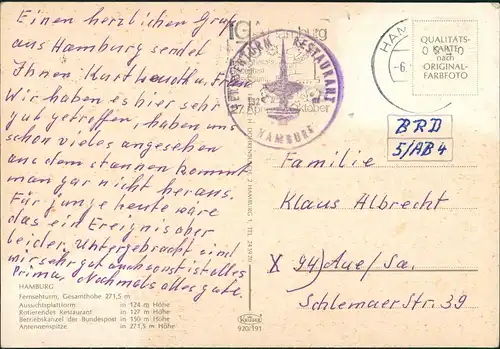 Einen herzlichen Gruß
aus Hamburg sendet
Ihnen Kurt u. Frau
Wir haben es hier sehr
gut getroffen, haben uns
schon vieles angesehen
aus dem staunen kommt
man gar nicht heraus.
Für junge heute wäre
das ein Ereignis aber
leider. Untergebracht sind
wir sehr gut auch sonst ist alles
Prima. Nochmals alles gute.
HAMBURG
Fernsehturm, Gesamthöhe 271,5 m
Aussichtsplattform in 124 m Höhe
Rotierendes Restaurant in 127 m Höhe
Betriebskanzel der Bundespost in 150 m Höhe
Antennenspitze in 271,5 m Höhe
920/191
FERNSEHTURM RESTAURANT
HAMBURG
QUALITÄTS-
KARTE
nach
ORIGINAL-
FARBFOTO
BRD
5/AB4
Familie
Klaus Albrecht
X 94) Aue/Sa.
Schlemaer Str. 39